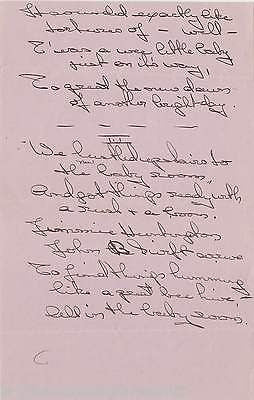 It sounded exactly like
tortures of — well —
T'was a wee little baby
just on its way,
To greet the new dawn
of another bright day.
III
"We hustled upstairs to
the new baby room
And got things ready with
a rush & a boom.
Jimmie Huntington
John B Swift
To find things humming
like a great bee hive
hell in the baby room.